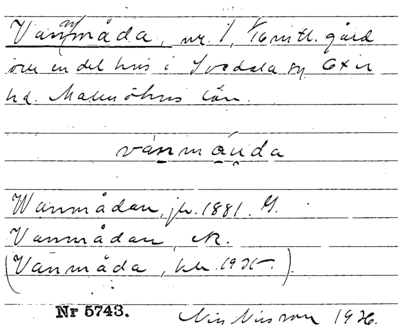 Vanmåda, nr. 1, 1/16 mtl. gård
över en del hus i Svedala sn Oxie
hd. Malmöhus län.
vánmåuda
Wanmådan, jb. 1881. G.
Vanmådan, R.
(Vanmåda, 1925.)
Nr 5743.
Nils Nilsson 1926.